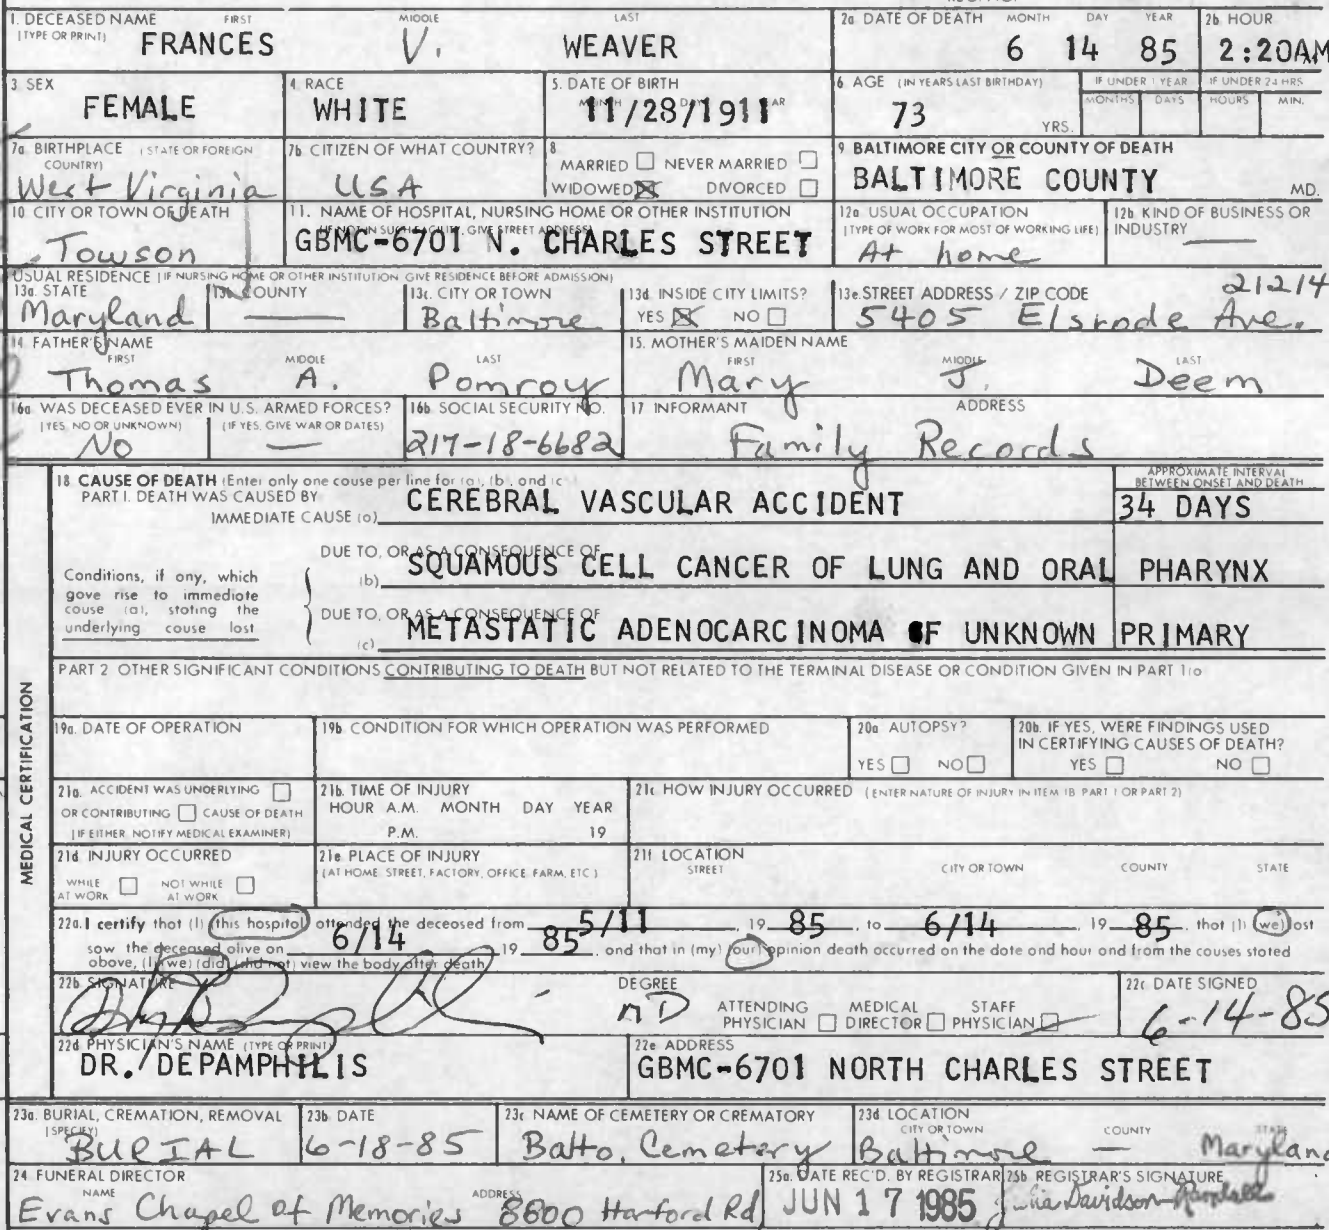 1. DECEASED NAME FIRST MIDDLE LAST
(TYPE OR PRINT) FRANCES V. WEAVER
2a DATE OF DEATH MONTH DAY YEAR
6 14 85
2b HOUR
2:20AM
3 SEX
FEMALE
4 RACE
WHITE
5. DATE OF BIRTH
11/28/1911
6 AGE (IN YEARS LAST BIRTHDAY)
73 YRS.
IF UNDER 1 YEAR
MONTHS DAYS
IF UNDER 24 HRS
HOURS MIN.
7a BIRTHPLACE (STATE OR FOREIGN COUNTRY)
West Virginia
7b CITIZEN OF WHAT COUNTRY?
USA
8
MARRIED NEVER MARRIED
WIDOWED DIVORCED
9 BALTIMORE CITY OR COUNTY OF DEATH
BALTIMORE COUNTY MD.
10 CITY OR TOWN OF DEATH
Towson
11. NAME OF HOSPITAL, NURSING HOME OR OTHER INSTITUTION
(IF NOT IN SUCH FACILITY, GIVE STREET ADDRESS)
GBMC-6701 N. CHARLES STREET
12a USUAL OCCUPATION
(TYPE OF WORK FOR MOST OF WORKING LIFE)
At home
12b KIND OF BUSINESS OR INDUSTRY
USUAL RESIDENCE (IF NURSING HOME OR OTHER INSTITUTION GIVE RESIDENCE BEFORE ADMISSION)
13a. STATE
Maryland
13b. COUNTY
13c. CITY OR TOWN
Baltimore
13d INSIDE CITY LIMITS?
YES NO
13e. STREET ADDRESS / ZIP CODE 21214
5405 Elsrode Ave.
14 FATHER'S NAME
FIRST MIDDLE LAST
Thomas A. Pomroy
15. MOTHER'S MAIDEN NAME
FIRST MIDDLE LAST
Mary J. Deem
16a WAS DECEASED EVER IN U.S. ARMED FORCES?
(YES, NO OR UNKNOWN) (IF YES, GIVE WAR OR DATES)
No
16b SOCIAL SECURITY NO.
217-18-6682
17 INFORMANT ADDRESS
Family Records
18 CAUSE OF DEATH (Enter only one cause per line for (a), (b), and (c)
PART I. DEATH WAS CAUSED BY
IMMEDIATE CAUSE (a) CEREBRAL VASCULAR ACCIDENT
APPROXIMATE INTERVAL BETWEEN ONSET AND DEATH
34 DAYS
Conditions, if any, which
gave rise to immediate
cause (a), stating the
underlying cause last
DUE TO, OR AS A CONSEQUENCE OF
(b) SQUAMOUS CELL CANCER OF LUNG AND ORAL PHARYNX
DUE TO, OR AS A CONSEQUENCE OF
(c) METASTATIC ADENOCARCINOMA OF UNKNOWN PRIMARY
PART 2 OTHER SIGNIFICANT CONDITIONS CONTRIBUTING TO DEATH BUT NOT RELATED TO THE TERMINAL DISEASE OR CONDITION GIVEN IN PART 1(a
MEDICAL CERTIFICATION
19a. DATE OF OPERATION
19b CONDITION FOR WHICH OPERATION WAS PERFORMED
20a AUTOPSY?
YES NO
20b. IF YES, WERE FINDINGS USED
IN CERTIFYING CAUSES OF DEATH?
YES NO
21a. ACCIDENT WAS UNDERLYING
OR CONTRIBUTING CAUSE OF DEATH
(IF EITHER NOTIFY MEDICAL EXAMINER)
21b. TIME OF INJURY
HOUR A.M. MONTH DAY YEAR
P.M. 19
21c HOW INJURY OCCURRED (ENTER NATURE OF INJURY IN ITEM 18 PART 1 OR PART 2)
21d INJURY OCCURRED
WHILE AT WORK NOT WHILE AT WORK
21e PLACE OF INJURY
(AT HOME STREET, FACTORY, OFFICE FARM, ETC)
21f LOCATION
STREET CITY OR TOWN COUNTY STATE
22a. I certify that (I) (this hospital) attended the deceased from 5/11, 19 85, to 6/14 19 85, that (I) (we) last
saw the deceased alive on 6/14 19 85, and that in (my) (our) opinion death occurred on the date and hour and from the causes stated
above, (I) (we) (did) (did not) view the body after death
22b SIGNATURE
DEGREE
MD
ATTENDING PHYSICIAN MEDICAL DIRECTOR STAFF PHYSICIAN
22c DATE SIGNED
6-14-85
22d PHYSICIAN'S NAME (TYPE OR PRINT)
DR. DEPAMPHILIS
22e ADDRESS
GBMC-6701 NORTH CHARLES STREET
23a. BURIAL, CREMATION, REMOVAL
(SPECIFY)
BURIAL
23b DATE
6-18-85
23c NAME OF CEMETERY OR CREMATORY
Balto. Cemetery
23d LOCATION
CITY OR TOWN COUNTY STATE
Baltimore — Maryland
24 FUNERAL DIRECTOR
NAME ADDRESS
Evans Chapel of Memories 8800 Harford Rd
25a. DATE REC'D. BY REGISTRAR
JUN 17 1985
25b REGISTRAR'S SIGNATURE
Julia Davidson-Randall